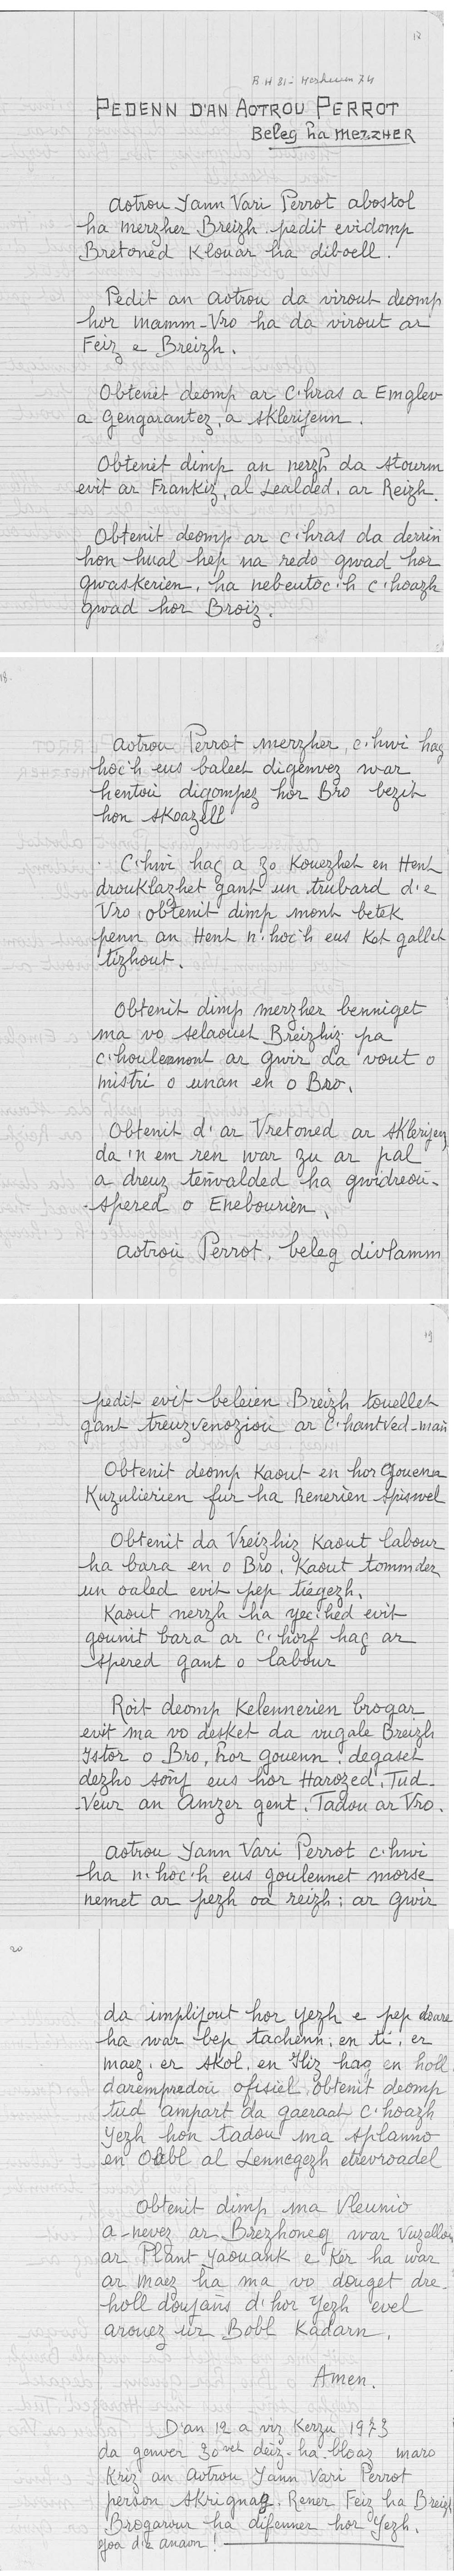 18
B.H 81 - Hezheven 74
PEDENN D'AN AOTROU PERROT
Beleg ha MERZHER
Aotrou Yann Vari Perrot abostol
ha merzher Breizh pedit evidomp
Bretoned Klouar ha diboell.
Pedit an aotrou da virout deomp
hor mamm-Vro ha da virout ar
Feiz e Breizh.
Obtenit deomp ar c'hras a Emglev
a Gengarantez, a sklerijenn.
Obtenit dimp an nerzh da stourm
evit ar Frankiz, al Lealded, ar Reizh.
Obtenit deomp ar c'hras da derriñ
hon hual hep na redo gwad hor
gwaskerien, ha nebeutoc'h c'hoazh
gwad hor Broiz.
18.
Aotrou Perrot merzher, c'hwi hag
hoc'h eus baleet digenvez war
hentoù digompez hor Bro bezit
hon skoazell
C'hwi hag a zo kouezhet en Hent
drouklazhet gant un trubard d'e
Vro obtenit dimp mont betek
penn an Hent n'hoc'h eus ket gallet
tizhout.
Obtenit dimp merzher benniget
ma vo selaouet Breizhiz pa
c'houlennont ar gwir da vout o
mistri o unan en o Bro.
Obtenit d'ar Vretoned ar sklerijenn
da 'n em ren war zu ar pal
a dreuz teñvalded ha gwidreoù-
-spered o Enebourien.
Aotroù Perrot, beleg divlamm
19
pedit evit beleien Breizh touellet
gant treuzvenozioù ar c'hantved-mañ
Obtenit deomp kaout en hor Gouenn
Kuzulierien fur ha Renerien spiswel
Obtenit da Vreizhiz kaout labour
ha bara en o Bro. Kaout tommder
un oaled evit pep tiegezh.
Kaout nerzh ha yec'hed evit
gounit bara ar c'horf hag ar
spered gant o labour
Roit deomp Kelennerien brogar
evit ma vo desket da vugale Breizh
Istor o Bro, hor gouenn, degaset
dezho soñj eus hor Harozed, Tud-
-Veur an Amzer gent, Tadou ar Vro.
Aotrou Yann Vari Perrot c'hwi
ha n'hoc'h eus goulennet morse
nemet ar pezh oa reizh: ar gwir
20
da implijout hor yezh e pep doare
ha war bep tachenn, en ti, er
maez, er skol, en Iliz hag en holl
darempredoù ofisiel, obtenit deomp
tud ampart da gaeraat c'hoazh
yezh hon tadou ma splanno
en Oabl al Lennegezh etrevroadel
Obtenit dimp ma vleunio
a-nevez ar Brezhoneg war Vuzelloù
ar Plant yaouank e Kêr ha war
ar maez ha ma vo douget dre-
holl doujañs d'hor yezh evel
arouez ur Bobl Kadarn.
Amen.
D'an 12 a viz Kerzu 1973
da genver 30vet deiz-ha-bloaz maro
Kriz an aotrou Yann Vari Perrot
person Skrignag. Rener Feiz ha Breizh
Brogarour ha difenner hor Yezh.
Joa d'e anaon!